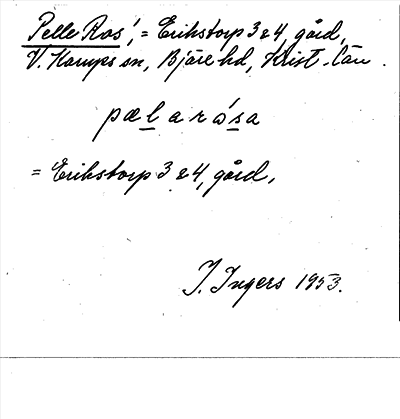 Pelle Ros', = Erikstorp 3 & 4, gård,
V. Karups sn, Bjäre hd, Krist. län.
pælarósa
= Erikstorp 3 & 4, gård,
I. Ingers 1953.